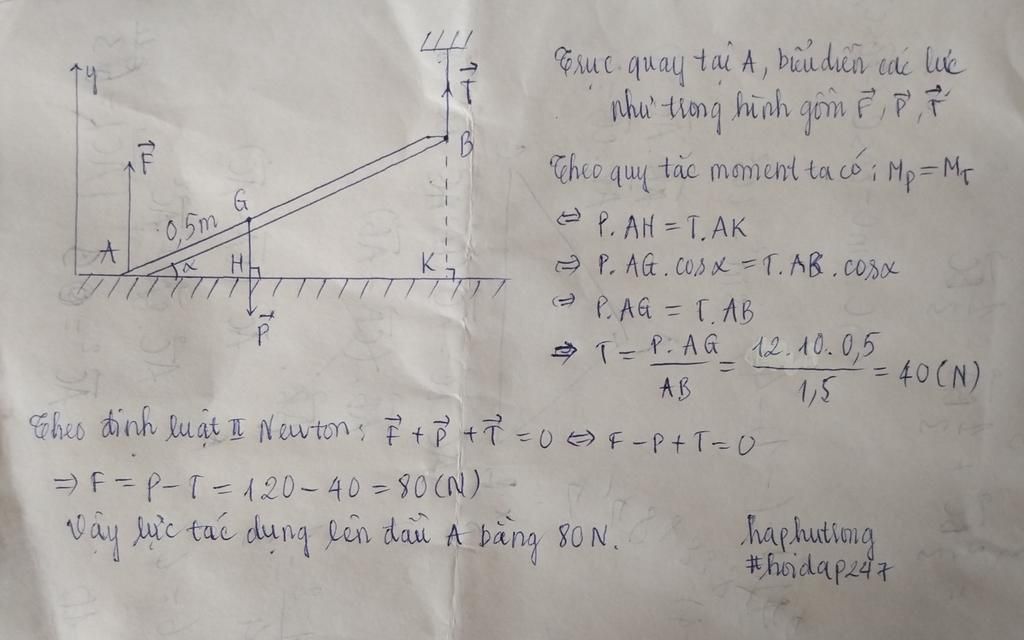 y
F
T
B
G
0,5m
A
α
H
K
P
Trục quay tại A, biểu diễn các lực
như trong hình gồm F, P, T
Theo quy tắc moment ta có: M_P = M_T
⇔ P.AH = T.AK
⇔ P.AG.cosα = T.AB.cosα
⇔ P.AG = T.AB
⇒ T = P.AG / AB = 12.10.0,5 / 1,5 = 40 (N)
Theo định luật II Newton: F + P + T = 0 ⇔ F - P + T = 0
⇒ F = P - T = 120 - 40 = 80 (N)
Vậy lực tác dụng lên đầu A bằng 80N.
haphutrong
#hoidap247